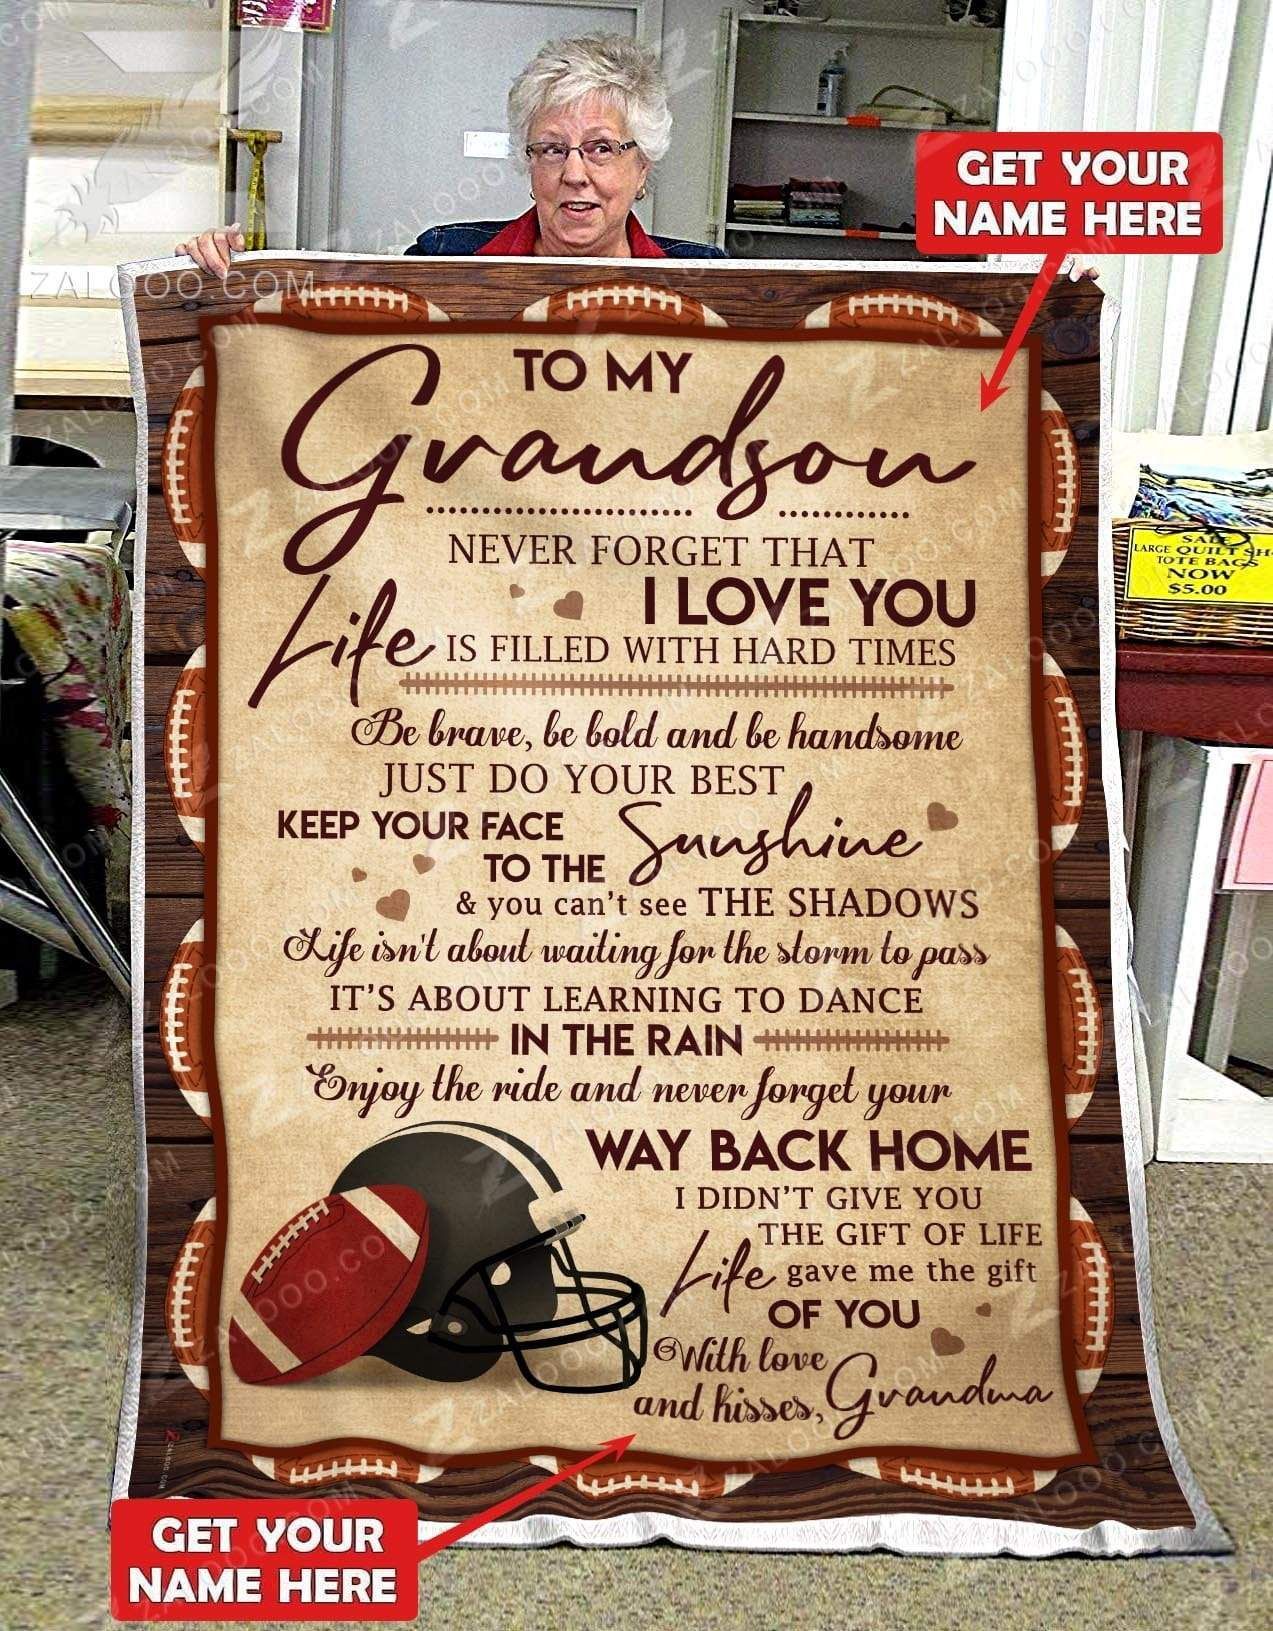 GET YOUR
NAME HERE
ZALOOO.COM
TO MY
Grandson
NEVER FORGET THAT
I LOVE YOU
Life IS FILLED WITH HARD TIMES
Be brave, be bold and be handsome
JUST DO YOUR BEST
KEEP YOUR FACE
TO THE Sunshine
& you can't see THE SHADOWS
Life isn't about waiting for the storm to pass
IT'S ABOUT LEARNING TO DANCE
IN THE RAIN
Enjoy the ride and never forget your
WAY BACK HOME
I DIDN'T GIVE YOU
THE GIFT OF LIFE
Life gave me the gift
OF YOU
With love
and kisses, Grandma
SALE
LARGE QUILT SH
TOTE BAGS
NOW
$5.00
GET YOUR
NAME HERE